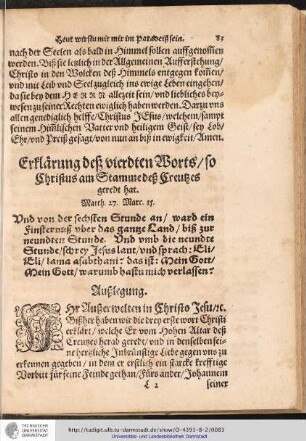 Heut wirstu mit mir im Paradeiß sein. 83
nach der Seelen als bald in Himmel sollen auffgenommen
werden. Biß sie letzlich in der Allgemeinen Aufferstehung/
Christo in den Wolcken deß Himmels entgegen komen/
vnd mit Leib vnd Seel zugleich ins ewige Leben eingehen/
da sie bey dem HERRN allezeit sein/ vnd liebliches beywesen
zu seiner Rechten ewiglich haben werden. Darzu vns
allen genediglich helffe/ Christus JEsus/ welchem/ sampt
seinem Himlischen Vatter vnd heiligem Geist/ sey Lob/
Ehr/ vnd Preiß gesagt/ von nun an biß in ewigkeit/ Amen.
Erklärung deß vierdten Worts/ so
Christus am Stamme deß Creutzes
geredt hat.
Matth. 27. Marc. 15.
Vnd von der sechsten Stunde an/ ward ein
Finsternuß vber das gantze Land/ biß zur
neundten Stunde. Vnd vmb die neundte
Stunde/ schrey Jesus laut/ vnd sprach: Eli/
Eli/ lama asabthani: das ist: Mein Gott/
Mein Gott/ warumb hastu mich verlassen?
Außlegung.
IHr Außerwelten in Christo Jesu/ ꝛc.
Bißher haben wir die drey erste wort Christi
erklärt/ welche Er vom Hohen Altar deß
Creutzes herab geredt/ vnd in denselben seine
hertzliche Inbrünstige Liebe gegen vns zu
erkennen gegeben/ in dem er erstlich ein starcke trefftige
Vorbitt für seine Feinde gethan/ Fürs ander/ Johannem
L 2 seiner
TECHNISCHE
UNIVERSITÄT
DARMSTADT
http://tudigit.ulb.tu-darmstadt.de/show/O-4391-8-2/0083
Universitäts- und Landesbibliothek Darmstadt